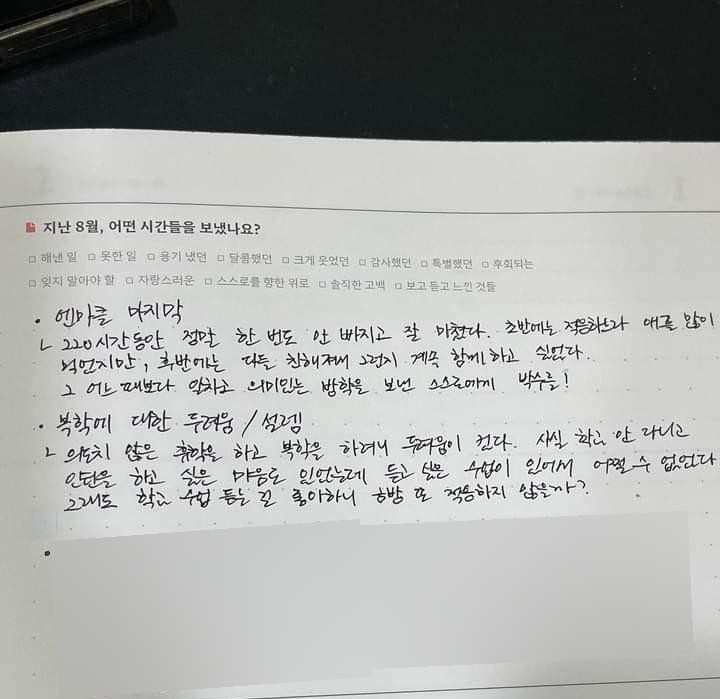 지난 8월, 어떤 시간들을 보냈나요?
□ 해낸 일 □ 못한 일 □ 용기 냈던 □ 달콤했던 □ 크게 웃었던 □ 감사했던 □ 특별했던 □ 후회되는
□ 잊지 말아야 할 □ 자랑스러운 □ 스스로를 향한 위로 □ 솔직한 고백 □ 보고 듣고 느낀 것들
• 엔마클 마지막
ㄴ 220시간동안 정말 한 번도 안 빠지고 잘 마쳤다. 초반에는 적응하느라 애를 많이
먹었지만, 후반에는 다들 친해져서 그런지 계속 함께하고 싶었다.
그 어느 때보다 알차고 의미있는 방학을 보낸 스스로에게 박수를!
• 복학에 대한 두려움 / 설렘
ㄴ 의도치 않은 휴학을 하고 복학을 하려니 두려움이 컸다. 사실 학교 안 다니고
인턴을 하고 싶은 마음도 있었는데 듣고 싶은 수업이 있어서 어쩔 수 없었다
그래도 학교 수업 듣는 걸 좋아하니 금방 또 적응하지 않을까?